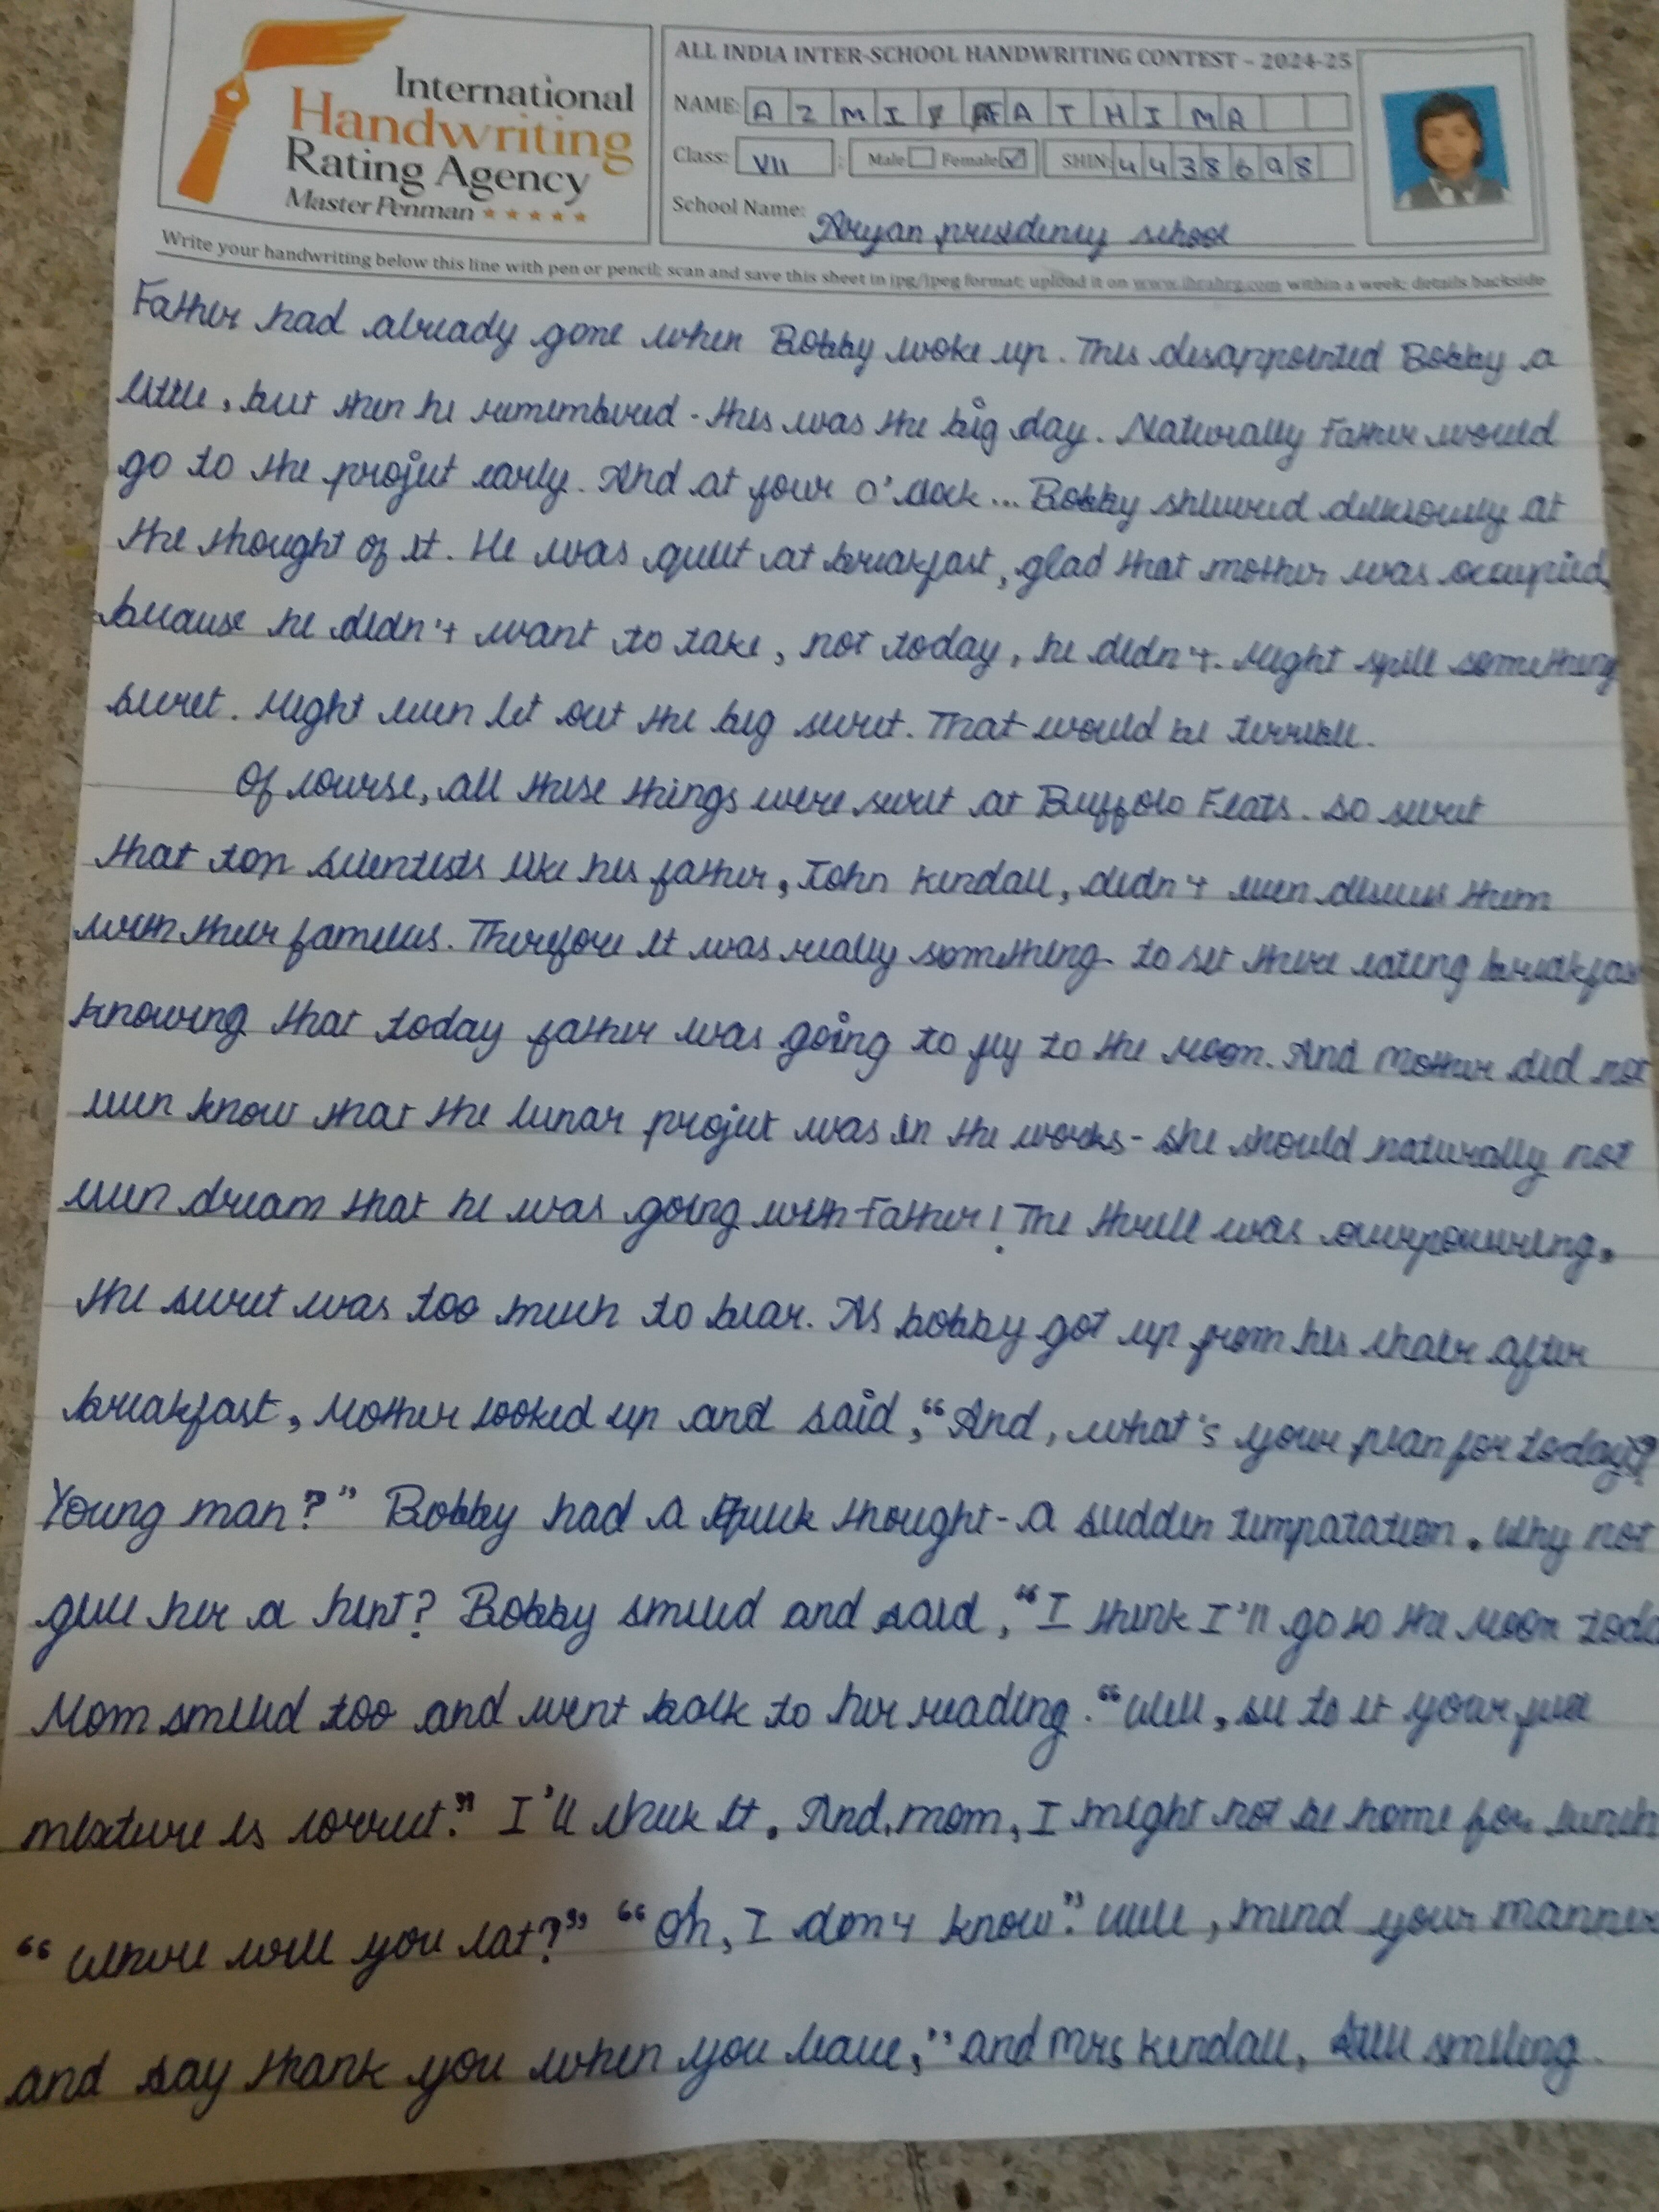 International
Handwriting
Rating Agency
Master Penman
ALL INDIA INTER-SCHOOL HANDWRITING CONTEST - 2024-25
NAME: AZMI FATHIMA
Class: VII Male Female SHIN: 4438698
School Name: Aryan presidency school
Write your handwriting below this line with pen or pencil; scan and save this sheet in jpg/jpeg format; upload it on www.ihrahrg.com within a week; details backside
Father had already gone when Bobby woke up. This disappointed Bobby a
little, but then he remembered - this was the big day. Naturally Father would
go to the project early. And at four o'clock... Bobby shivered deliciously at
the thought of it. He was quiet at breakfast, glad that mother was occupied,
because he didn't want to take, not today, he didn't. Might spill something
secret. Might even let out the big secret. That would be terrible.
Of course, all these things were secret at Buffolo Flats. So secret
that top scientists like his father, John Kendall, didn't even discuss them
with their families. Therefore it was really something to sit there eating breakfas
knowing that today father was going to fly to the Moon. And Mother did not
even know that the lunar project was in the works - she should naturally not
even dream that he was going with Father! The thrill was overpowering.
The secret was too much to bear. As bobby got up from his chair after
breakfast, Mother looked up and said, "And, what's your plan for today?
Young man?" Bobby had a quick thought - a sudden tempatation. Why not
give her a hint? Bobby smiled and said, "I think I'll go to the Moon toda
Mom smiled too and went back to her reading. "Well, see to it your fuel
mixture is correct." I'll check it. And, mom, I might not be home for lunch
"Where will you eat?" "Oh, I don't know." Well, mind your manner
and say thank you when you leave," and Mrs Kendall, still smiling.